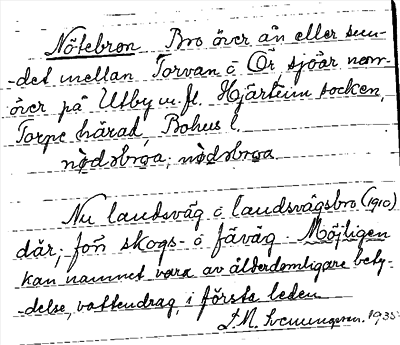 Nötebron Bro över ån eller sun-
-det mellan Torvan o Ör, sjöar norr-
över på Utby m.fl. Hjärtum socken,
Torpe härad, Bohus l.
Nu landsväg o landsvägsbro (1910)
där, förr skogs- o fäväg. Möjligen
kan namnet vara av ålderdomligare bety-
-delse, vattendrag, i första leden
J.M. Svenungsson. 1935